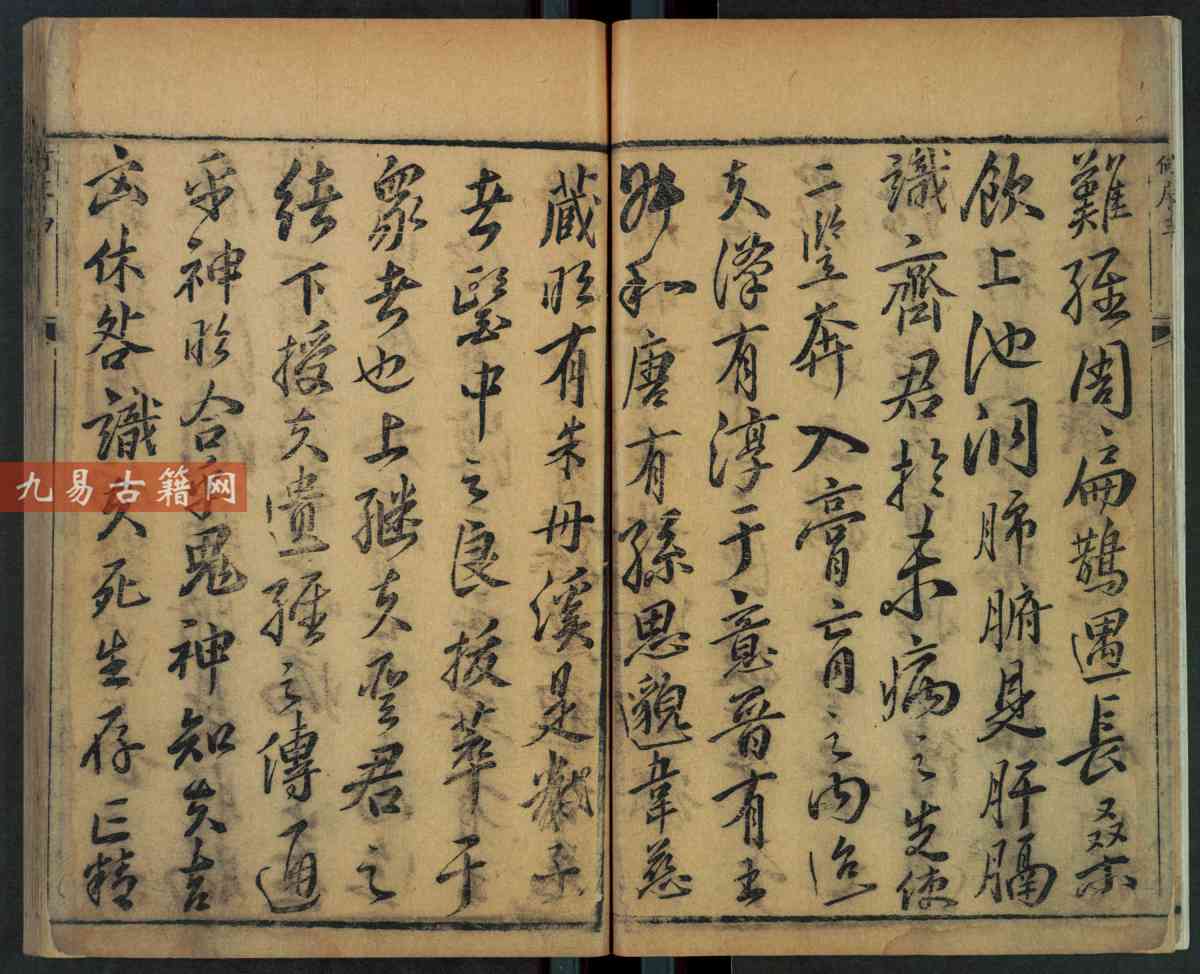 難經周扁鵲遇長桑
飲上池洞肺腑見肝膈
識齊君於未病之先使
二豎奔入膏肓之內迨
夫漢有淳于意晉有王
叔和唐有孫思邈韋慈
藏明有朱丹溪是數子
者醫中之良拔萃于
衆者也上繼夫聖君之
緒下授夫遺經之傳通
乎神明合乎鬼神知夫吉
凶休咎識夫死生存亡精
九易古籍网